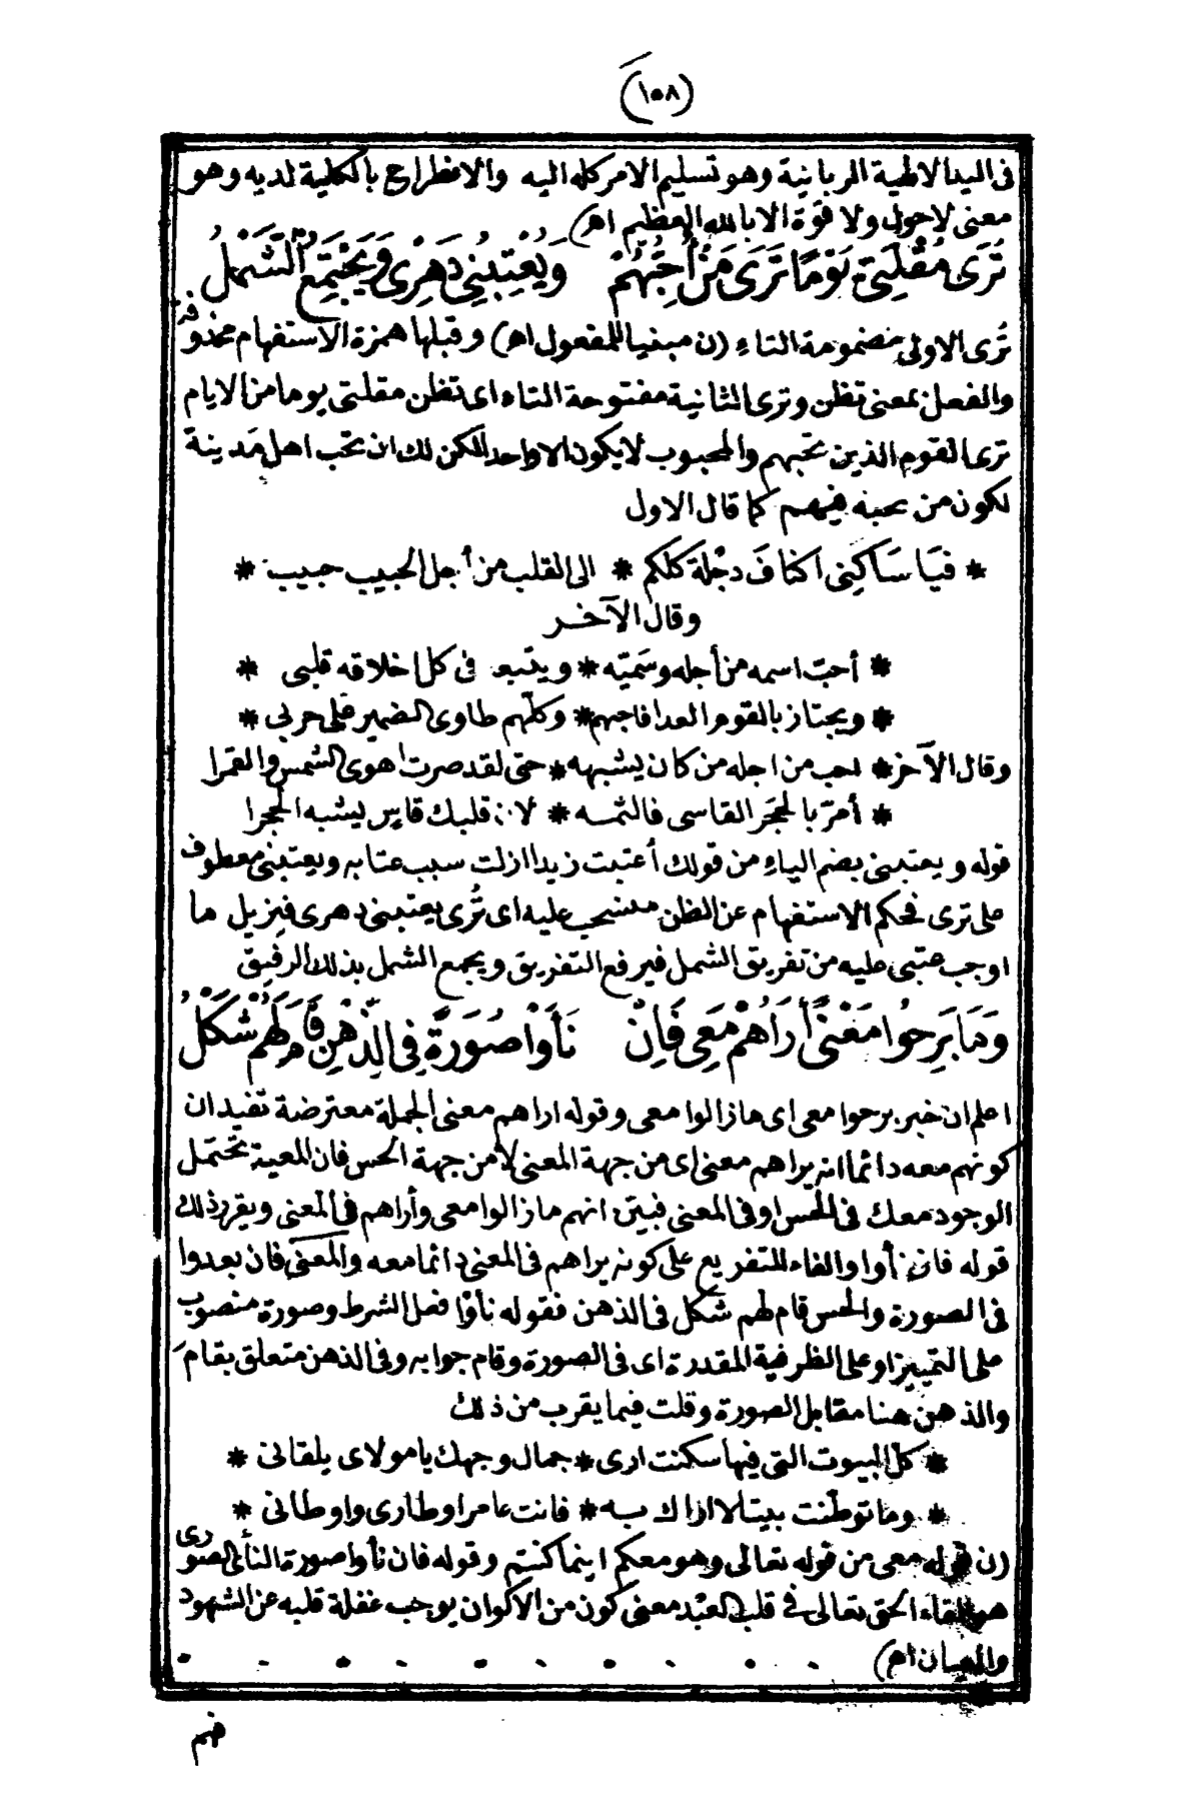 (١٥٨)
فى اليد الالهية الربانية وهو تسليم الامر كله اليه والانطراح بالكلية لديه وهو
معنى لاحول ولا قوة الا بالله العظيم اهـ)
تُرَى مُقْلَتِى يَوْمًا تَرَى مَنْ أُحِبُّهُمْ وَيُعْتِبُنِى دَهْرِى وَيَجْتَمِعُ الشَّمْلُ
تُرَى الاولى مضمومة التاء (ن مبنيا للمفعول اهـ) وقبلها همزة الاستفهام محذوفة
والفعل بمعنى تظن وترى الثانية مفتوحة التاء اى تظن مقلتى يوما من الايام
ترى القوم الذين تحبهم والمحبوب لايكون الا واحدا لكن لك ان تحب اهل مدينة
لكون من تحبه فيهم كما قال الاول
* فيَا سَاكِنِى اكنافَ دجْلة كلكم * الى القلب من أجل الحبيب حبيب *
وقال الآخر
* أحبّ اسمه من أجله وسَميّه * ويتبعه فى كل اخلاقه قلبى *
* ويجتاز بالقوم العدا فاحبهم * وكلّهم طاوى الضمير على حربى *
وقال الآخر * احب من اجله من كان يشبهه * حتى لقد صرت اهوى الشمس والقمرا
* أمرّ بالحجَر القاسى فالثمه * لان قلبك قاسٍ يشبه الحجرا
قوله ويعتبنى بضم الياءِ من قولك أعتبت زيدا ازلت سبب عتابه ويعتبنى معطوف
على ترى فحكم الاستفهام عن الظن منسحب عليه اى تُرى يعتبنى دهرى فيزيل ما
اوجب عتبى عليه من تفريق الشمل فيرفع التفريق ويجمع الشمل بذلك الرفيق
وَمَا بَرِحُوا مَعْنًى أَرَاهُمْ مَعِى فَاِنْ نَأَوْا صُورَةً فِى الذِّهْنِ قَامَ لَهُمْ شَكْلُ
اعلم ان خبر برحوا معى اى مازالوا معى وقوله اراهم معنى الجملة معترضة تفيد ان
كونهم معه دائما انه يراهم معنى اى من جهة المعنى لا من جهة الحس فان المعية تحتمل
الوجود معك فى الحس او فى المعنى فبيّن انهم مازالوا معى وأراهم فى المعنى ويقرر ذلك
قوله فان نأوا والفاء للتفريع على كونه يراهم فى المعنى دائما معه والمعنى فان بعدوا
فى الصورة والحس قام لهم شكل فى الذهن فقوله نأوْا فعل الشرط وصورة منصوب
على التمييز او على الظرفية المقدرة اى فى الصورة وقام جوابه وفى الذهن متعلق بقامَ
والذهن هنا مقابل الصورة وقلت فيما يقرب من ذلك
* كل البيوت التى فيها سكنت ارى * جمال وجهك يا مولاى يلقانى *
* وما توطّنت بيتا لا اراك به * فانت عامر اوطارى واوطانى *
(ن قوله معى من قوله تعالى وهو معكم اينما كنتم وقوله فان نأوا صورة النأى الصورى
هو القاء الحق تعالى فى قلب العبْد معنى كون من الاكوان يوجب غفلة قلبه عن الشهود
والعيان اهـ)
فهم